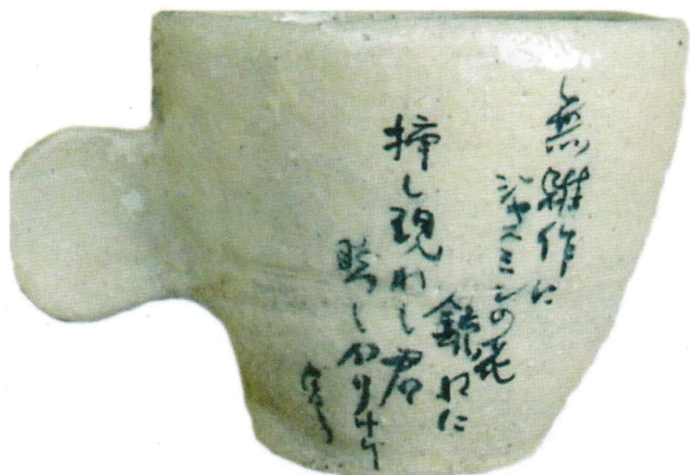 無雑作に
ジャスミンの花
銃口に
挿し現れし君
眩しかりけり